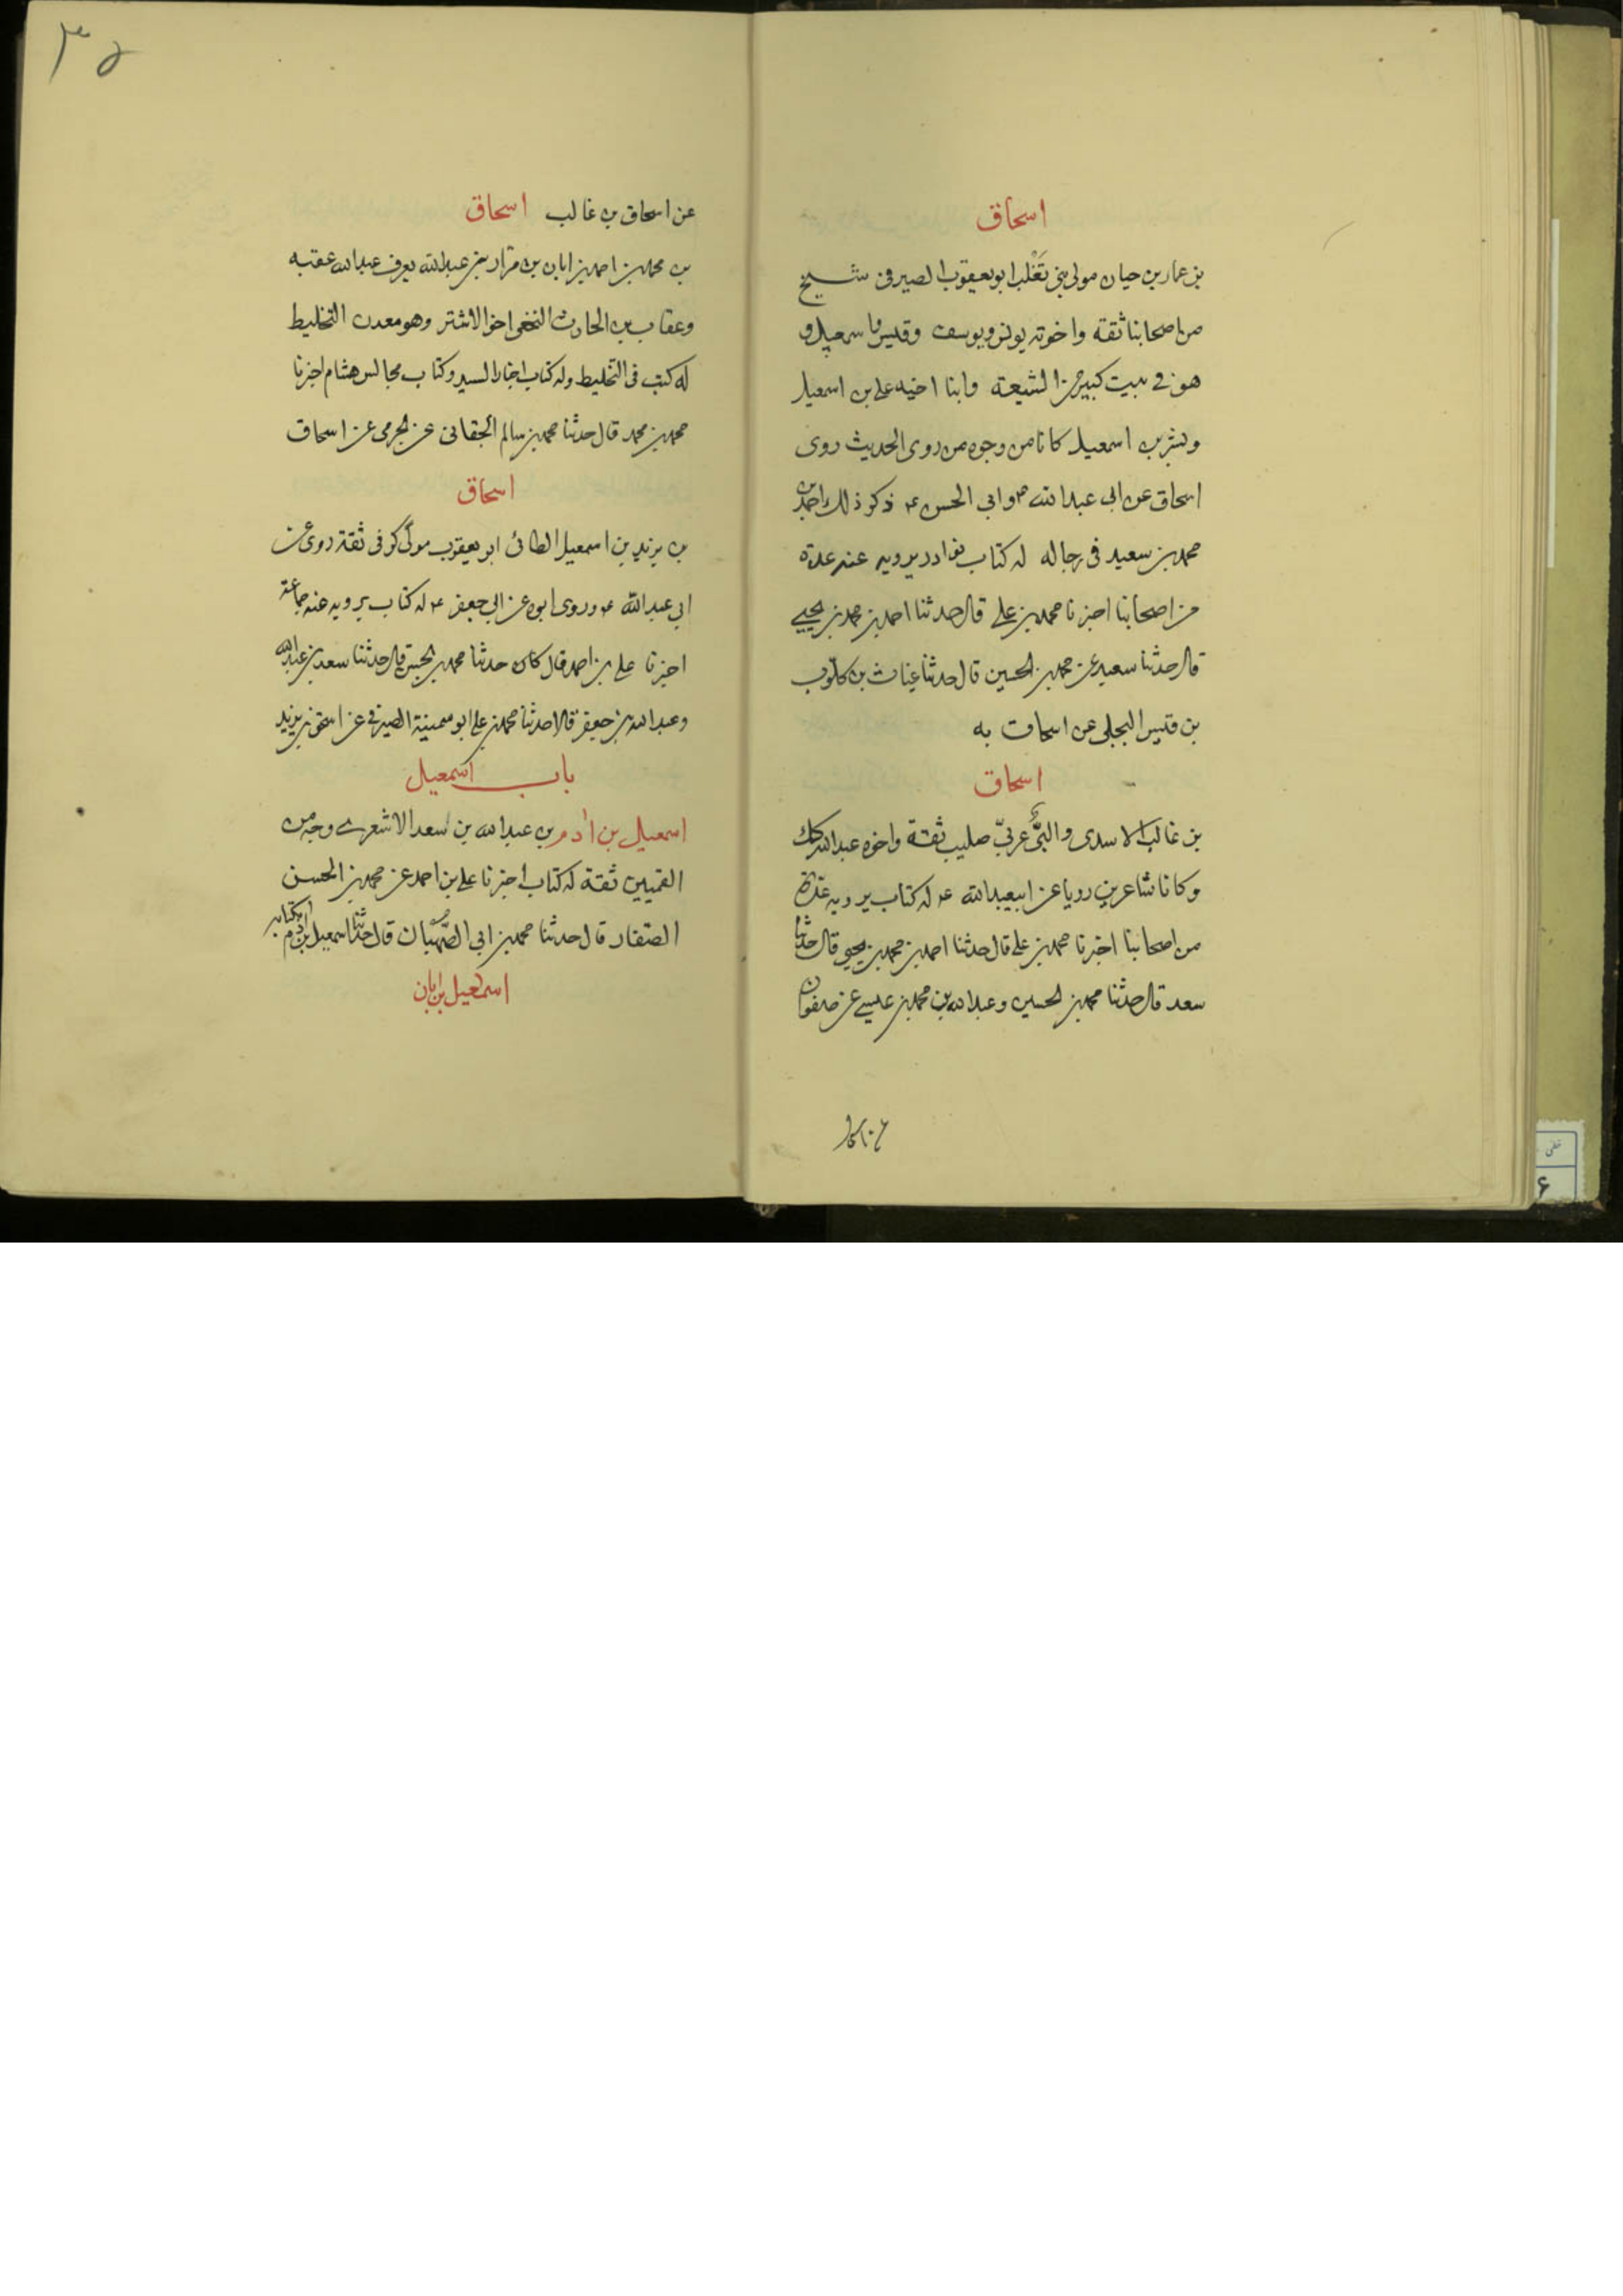 اسحاق
بن عمار بن حيان مولى بني تَغْلب ابو يعقوب الصيرفى شيخ
من اصحابنا ثقة واخوته يونس ويوسف وقيس واسمعيل و
هو فى بيت كبير من الشيعة وابنا اخيه على بن اسمعيل
وبشر بن اسمعيل كانا من وجوه من روى الحديث روى
اسحاق عن ابى عبدالله ء وابى الحسن ء ذكر ذلك احمد بن
محمد بن سعيد فى رجاله له كتاب نوادر يرويه عنه عدة
من اصحابنا اخبرنا محمد بن على قال حدثنا احمد بن محمد بن يحيى
قال حدثنا سعيد عن محمد بن الحسين قال حدثنا غياث بن كلّوب
بن قيس البجلى عن اسحاق به
اسحاق
بن غالب الاسدى والبىٌّ عربىّ صليب ثقة واخوه عبدالله كك
وكانا شاعرين رويا عن ابيعبدالله ء له كتاب يرويه عدة
من اصحابنا اخبرنا محمد بن على قال حدثنا احمد بن محمد بن يحيى قال حدثنا
سعد قال حدثنا محمد بن الحسين وعبدالله بن محمد بن عيسى عن صفوان
٣٥
عن اسحاق بن غالب اسحاق
بن محمد بن احمد بن ابان بن مرار بن عبدالله يعرف عبدالله عقبه
وعقاب بن الحارث النخعى اخو الاشتر وهو معدن التخليط
له كتب فى التخليط وله كتاب اخبار السيد وكتاب مجالس هشام اخبرنا
محمد بن محمد قال حدثنا محمد بن سالم الجعانى عن الجرمى عن اسحاق
اسحاق
بن يزيد بن اسمعيل الطائى ابو يعقوب مولى كوفى ثقة روى عن
ابى عبدالله ء وروى ابوه عن ابى جعفر ء له كتاب يرويه عنه جماعة
اخبرنا على بن احمد قال كان حدثنا محمد بن الحسن قال حدثنا سعد بن عبدالله
وعبدالله بن جعفر قالا حدثنا محمد بن على ابو سمينة الصيرفى عن اسحق بن يزيد
باب اسمعيل
اسمعيل بن ادم بن عبدالله بن سعد الاشعرى وجه من
القميين ثقة له كتاب اخبرنا على بن احمد عن محمد بن الحسن
الصفار قال حدثنا محمد بن ابى الصُّهْبان قال حدثنا اسمعيل بن ادم بكتابه
اسمعيل بن ابان